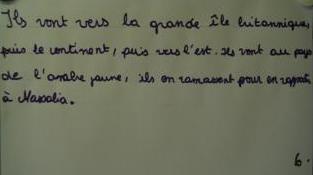 Ils vont vers la grande île britannique,
puis le continent, puis vers l'est. Ils vont au pays
de l'ambre jaune, ils en ramassent pour en rapporter
à Massalia.
6.